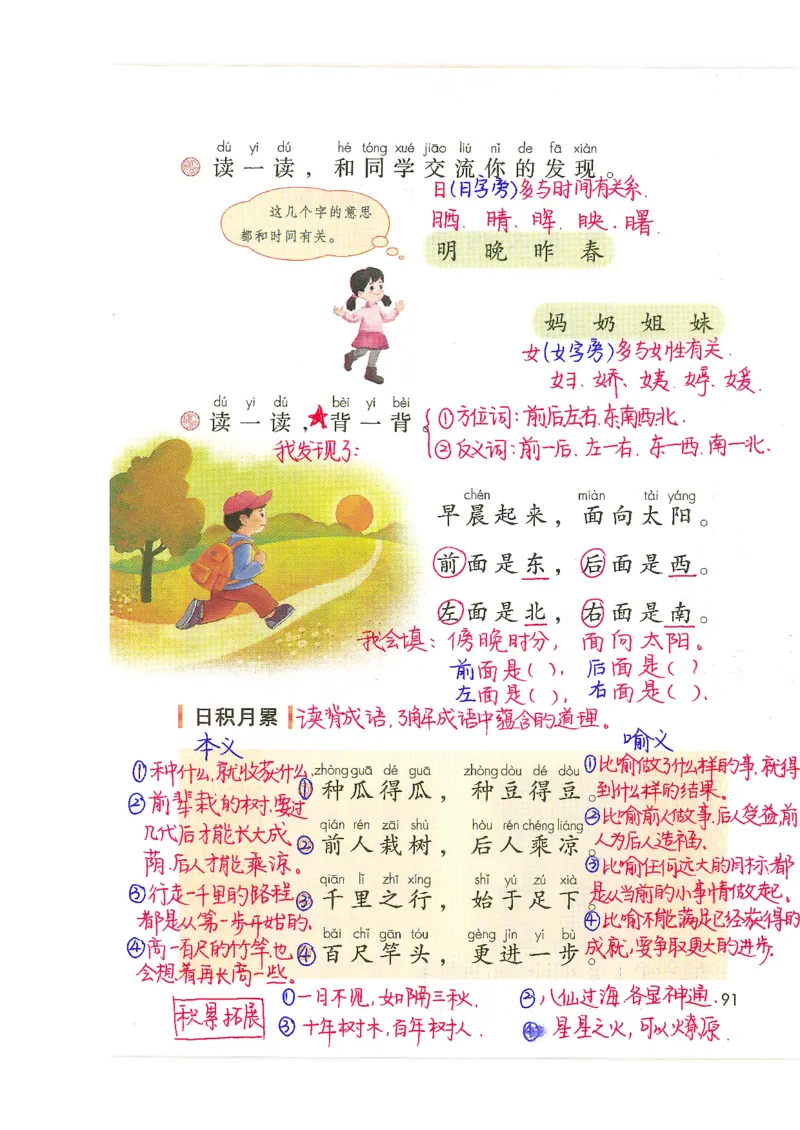 dú yi dú hé tóng xué jiāo liú nǐ de fā xiàn
读一读，和同学交流你的发现。
日(日字旁)多与时间有关系.
这几个字的意思
都和时间有关。
晒. 晴. 晖. 映. 曙.
明 晚 昨 春
妈 奶 姐 妹
女(女字旁)多与女性有关.
妇. 娇、姨. 婷. 媛.
dú yi dú bèi yi bèi
读一读，背一背。
①方位词：前后左右.东南西北.
②反义词：前—后. 左—右. 东—西. 南—北.
我发现了：
chén miàn tài yáng
早晨起来，面向太阳。
前面是东，后面是西。
左面是北，右面是南。
我会填：傍晚时分，面向太阳。
前面是( )，后面是( )
左面是( )，右面是( )、
日积月累
读背成语，了解成语中蕴含的道理。
本义
喻义
①种什么，就收获什么.
②前辈栽的树，要过
几代后才能长大成
荫.后人才能乘凉。
③行走一千里的路程
都是从第一步开始的、
④高一百尺的竹竿，也
会想着再长高一些。
zhòng guā dé guā zhòng dòu dé dòu
①种瓜得瓜，种豆得豆。
qián rén zāi shù hòu rén chéng liáng
②前人栽树，后人乘凉。
qiān lǐ zhī xíng shǐ yú zú xià
③千里之行，始于足下。
bǎi chǐ gān tóu gèng jìn yí bù
④百尺竿头，更进一步。
①比喻做了什么样的事.就得
到什么样的结果。
②比喻前人做事，后人受益，前
人为后人造福、
③比喻任何远大的目标都
是从当前的小事情做起。
④比喻不能满足已经获得的
成就，要争取更大的进步.
积累拓展
①一日不见，如隔三秋.
②八仙过海.各显神通.
91
③十年树木，百年树人.
④星星之火，可以燎原.